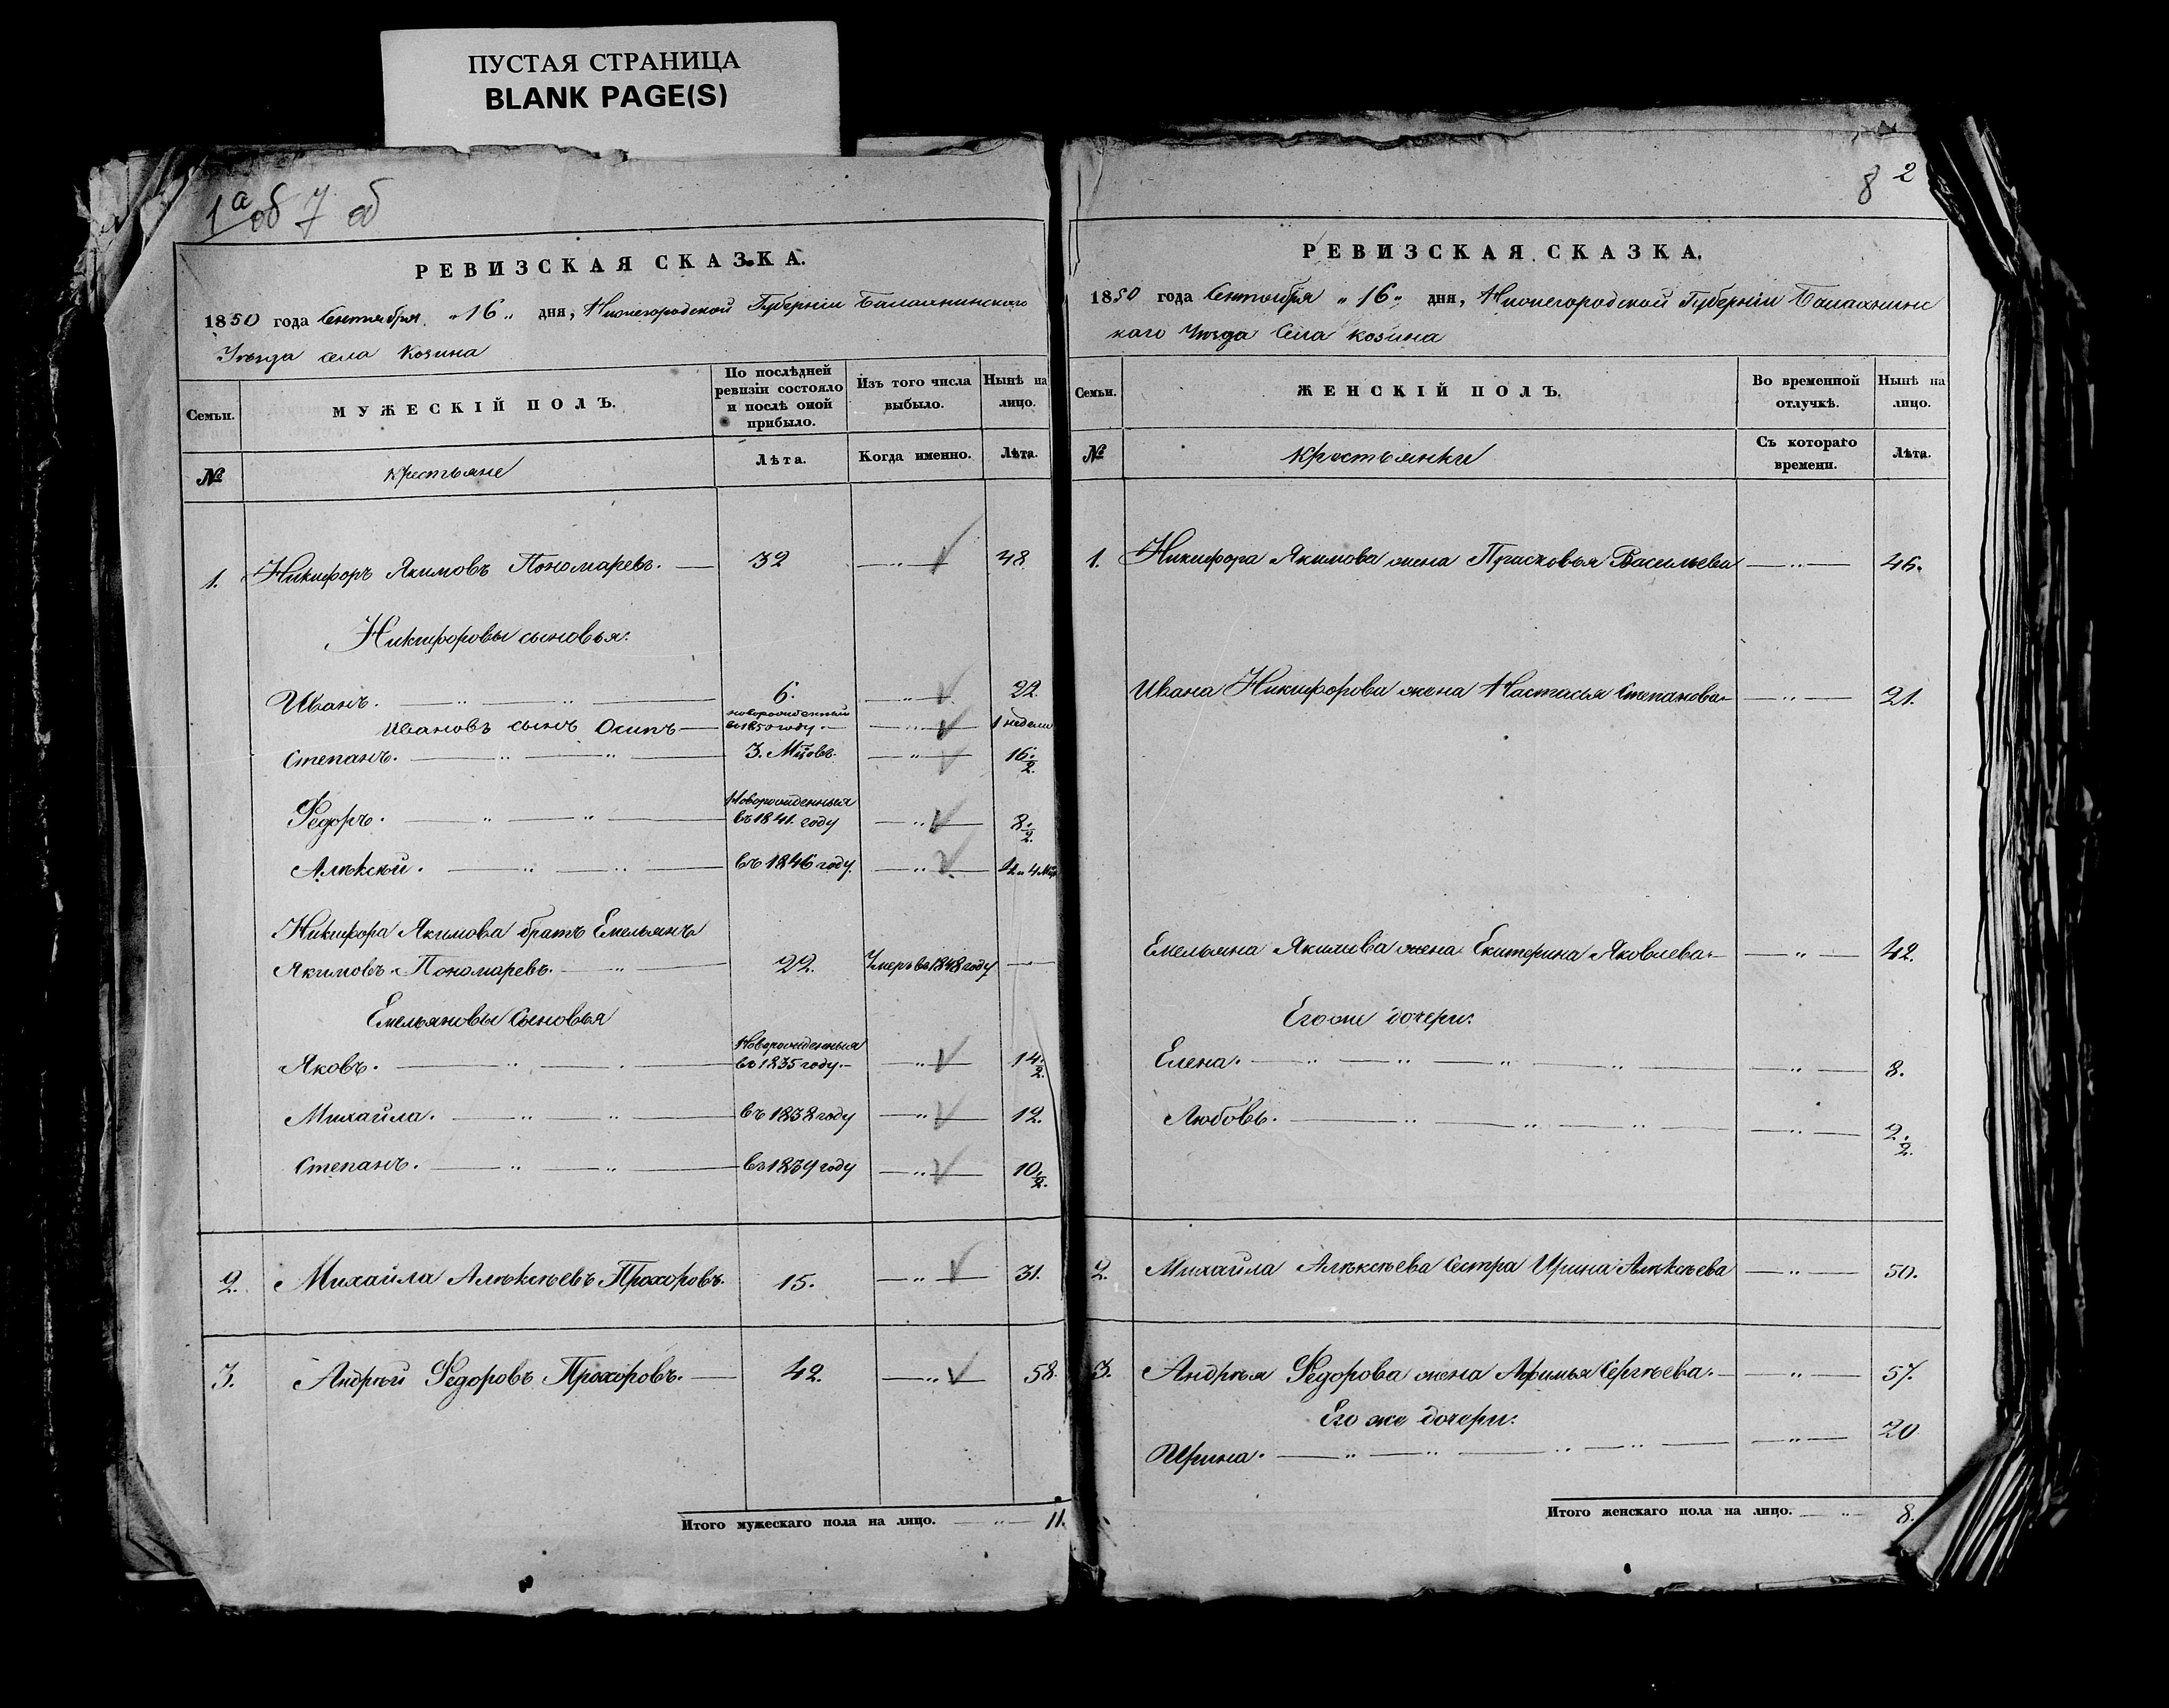 ПУСТАЯ СТРАНИЦА
BLANK PAGE(S)
1а об 7 об
РЕВИЗСКАЯ СКАЗКА.
1850 года Сентября „16„ дня, Нижегородской Губерніи Балахнинскаго
Уѣзда села Козина
Семьи.
МУЖЕСКІЙ ПОЛЪ.
По послѣдней ревизіи состояло и послѣ оной прибыло.
Изъ того числа выбыло.
Нынѣ на лицо.
№
Крестьяне
Лѣта.
Когда именно.
Лѣта.
1. Никифоръ Якимовъ Пономаревъ. 32 48
Никифоровы сыновья.
Иванъ. 6. 22.
Ивановъ сынъ Осипъ новорожденный в 1850 году 1 недели
Степанъ. 3. Мцовъ. 16 1/2.
Федоръ. Новорожденныя въ 1841. году 8 1/2.
Алѣксѣй. въ 1846 году. 4 Мца
Никифора Якимова братъ Емельянъ
Якимовъ Пономаревъ. 22. Умеръ въ 1848 году
Емельяновы Сыновья
Яковъ. Новорожденныя въ 1835 году. 14 1/2.
Михайла. въ 1838 году 12.
Степанъ. въ 1839 году 10 1/2.
2. Михайла Алѣксѣевъ Прохоровъ. 15. 31.
3. Андрѣй Федоровъ Прохоровъ. 42. 58.
Итого мужескаго пола на лицо. 11.
8 2
РЕВИЗСКАЯ СКАЗКА.
1850 года Сентября „16„ дня, Нижегородской Губерніи Балахнинс
каго Уѣзда Села Козина
Семьи.
ЖЕНСКІЙ ПОЛЪ.
Во временной отлучкѣ.
Нынѣ на лицо.
№
Крестьянки
Съ котораго времени.
Лѣта.
1. Никифора Якимова жена Прасковья Васильева 46.
Ивана Никифорова жена Настасья Степанова 21.
Емельяна Якимова жена Екатерина Яковлева 42.
Его же дочери.
Елена. 8.
Любовь. 2 1/2.
2. Михайла Алѣксѣева Сестра Ирина Алѣксѣева 50.
3. Андрѣя Федорова жена Афимья Сергѣева. 57.
Его же дочери.
Ирина. 20
Итого женскаго пола на лицо. 8.